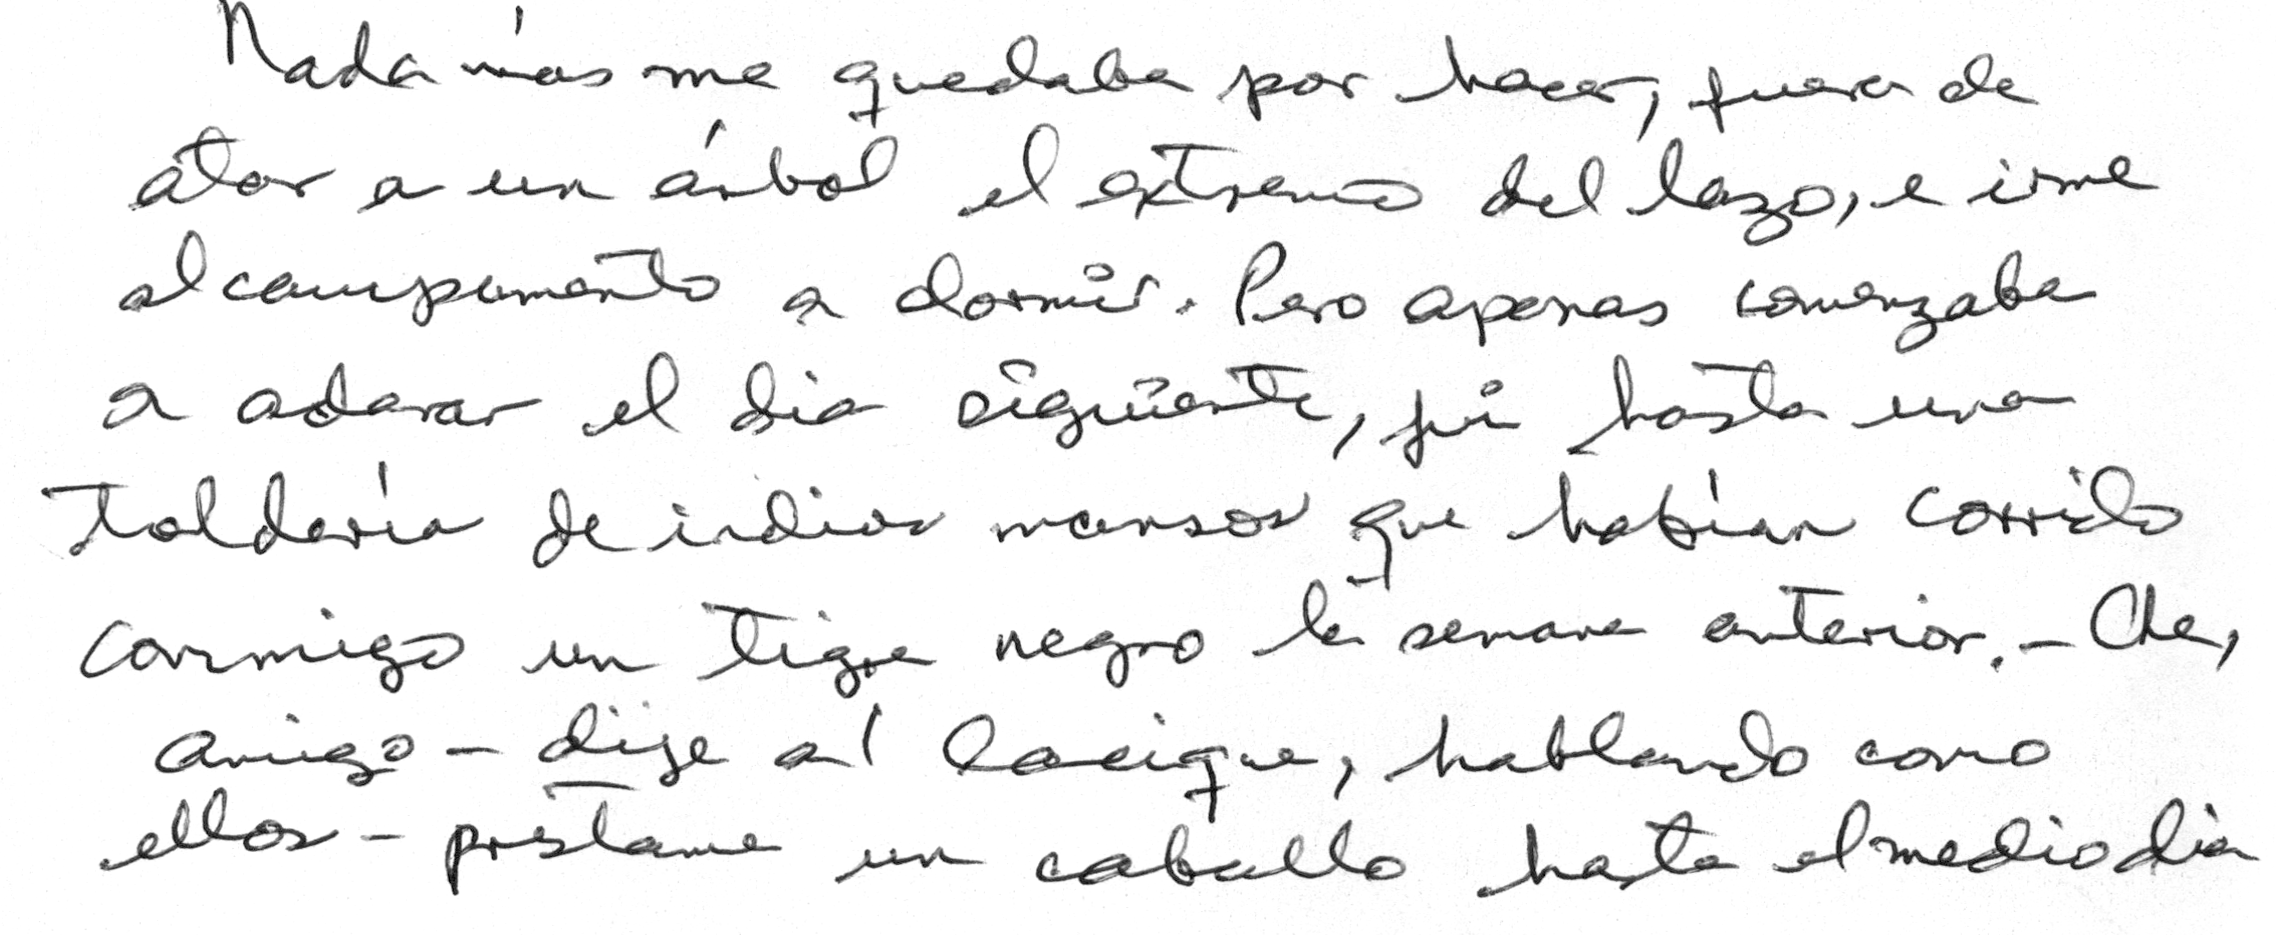 Nada más me quedaba por hacer, fuera de
atar a un árbol el extremo del lazo, e irme
al campamento a dormir. Pero apenas comenzaba
a aclarar el dia siguiente, fui hasta una
toldería de indios mansos que habían corrido
conmigo un tigre negro la semana anterior. - Che,
amigo - dije al Cacique, hablando como
ellos - prestame un caballo hasta el mediodia